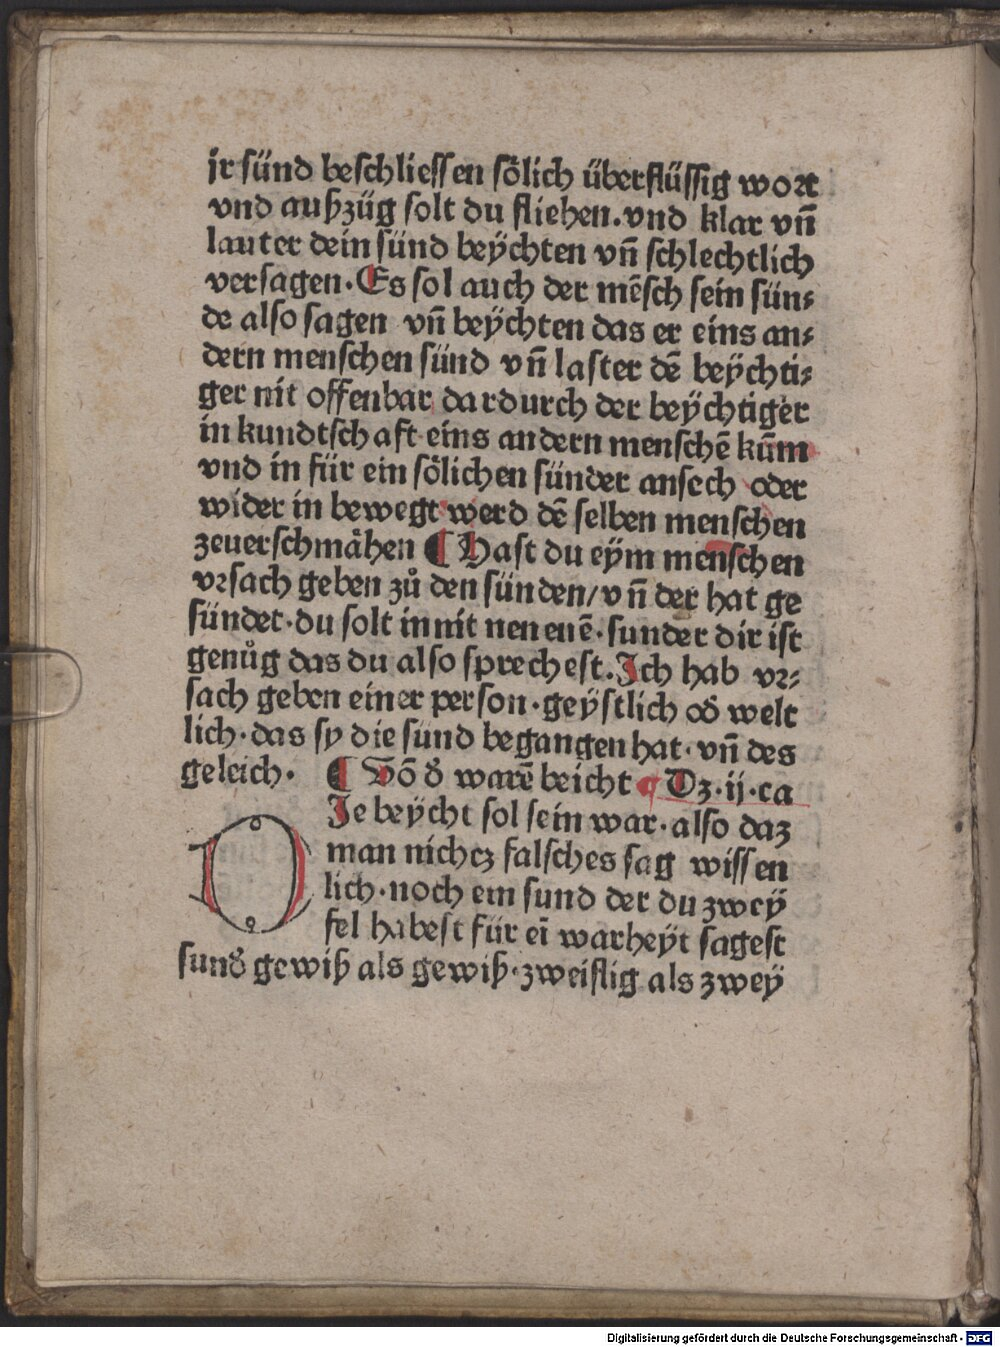 ir sünd beschliessen sölich überflüssig wort
vnd außzüg solt du fliehen. vnd klar vñ
lauter dein sünd beÿchten vñ schlechtlich
versagen. Es sol auch der mēsch sein sün⸗
de also sagen vñ beÿchten das er eins an⸗
dern menschen sünd vñ laster dē beÿchti⸗
ger nit offenbar dardurch der beÿchtiger
in kundtschaft eins andern menschē kūm
vnd in für ein sölichen sünder ansech oder
wider in bewegt werd dē selben menschen
zeuerschmähen ¶ Hast du eÿm menschen
vrsach geben zuͦ den sünden/ vñ der hat ge
sündet· du solt in nit nenenē· sunder dir ist
genuͦg das du also sprechest. Ich hab vr⸗
sach geben einer person· geÿstlich oď welt
lich· das sy die sünd begangen hat· vñ des
geleich· ¶ Vō ď warē beicht ¶ Dz· ij· ca
DIe beÿcht sol sein war· also daz
man nichcz falsches sag wissen
lich· noch ein sund der du zweÿ
fel habest für eī warheÿt sagest
sunď gewiß als gewiß· zweiflig als zweÿ
Digitalisierung gefördert durch die Deutsche Forschungsgemeinschaft - DFG